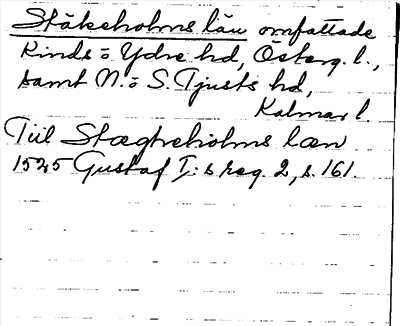 Stäkeholms län omfattade
Kinds o Ydre hd, Österg. l.,
samt N. o S. Tjusts hd,
Kalmar l.
Till Stægheholms læn
1525 Gustaf I:s reg. 2, s. 161.